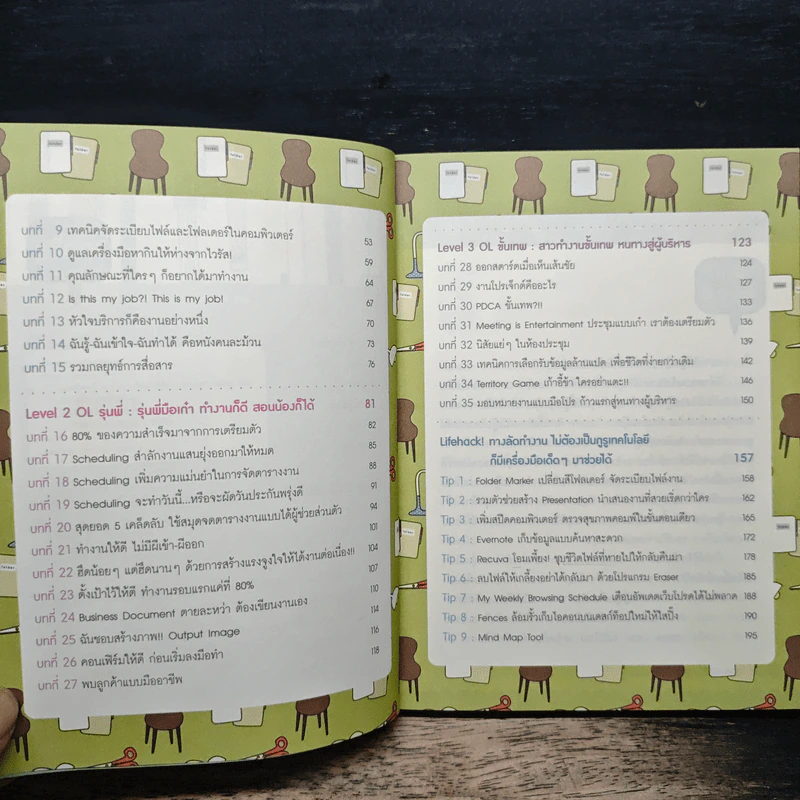 บทที่ 9 เทคนิคจัดระเบียบไฟล์และโฟลเดอร์ในคอมพิวเตอร์ 53
บทที่ 10 ดูแลเครื่องมือหากินให้ห่างจากไวรัส! 59
บทที่ 11 คุณลักษณะที่ใครๆ ก็อยากได้มาทำงาน 64
บทที่ 12 Is this my job?! This is my job! 67
บทที่ 13 หัวใจบริการก็คืองานอย่างหนึ่ง 70
บทที่ 14 ฉันรู้-ฉันเข้าใจ-ฉันทำได้ คือหนังคนละม้วน 73
บทที่ 15 รวมกลยุทธ์การสื่อสาร 76
Level 2 OL รุ่นพี่ : รุ่นพี่มือเก๋า ทำงานก็ดี สอนน้องก็ได้ 81
บทที่ 16 80% ของความสำเร็จมาจากการเตรียมตัว 82
บทที่ 17 Scheduling สำลักงานแสนยุ่งออกมาให้หมด 85
บทที่ 18 Scheduling เพิ่มความแม่นยำในการจัดตารางงาน 88
บทที่ 19 Scheduling จะทำวันนี้...หรือจะผัดวันประกันพรุ่งดี 91
บทที่ 20 สุดยอด 5 เคล็ดลับ ใช้สมุดจดตารางงานแบบได้ผู้ช่วยส่วนตัว 94
บทที่ 21 ทำงานให้ดี ไม่มีผีเข้า-ผีออก 101
บทที่ 22 ฮึดน้อยๆ แต่ฮึดนานๆ ด้วยการสร้างแรงจูงใจให้ได้งานต่อเนื่อง!! 104
บทที่ 23 ตั้งเป้าไว้ให้ดี ทำงานรอบแรกแค่ที่ 80% 107
บทที่ 24 Business Document ตายละหว่า ต้องเขียนงานเอง 110
บทที่ 25 ฉันชอบสร้างภาพ!! Output Image 114
บทที่ 26 คอนเฟิร์มให้ดี ก่อนเริ่มลงมือทำ 116
บทที่ 27 พบลูกค้าแบบมืออาชีพ 118
Level 3 OL ขั้นเทพ : สาวทำงานขั้นเทพ หนทางสู่ผู้บริหาร 123
บทที่ 28 ออกสตาร์ตเมื่อเห็นเส้นชัย 124
บทที่ 29 งานโปรเจ็กต์คืออะไร 127
บทที่ 30 PDCA ขั้นเทพ?!! 133
บทที่ 31 Meeting is Entertainment ประชุมแบบเก๋า เราต้องเตรียมตัว 136
บทที่ 32 นิสัยแย่ๆ ในห้องประชุม 139
บทที่ 33 เทคนิคการเลือกรับข้อมูลล้านแปด เพื่อชีวิตที่ง่ายกว่าเดิม 142
บทที่ 34 Territory Game เก้าอี้ข้า ใครอย่าแตะ!! 146
บทที่ 35 มอบหมายงานแบบมือโปร ก้าวแรกสู่หนทางผู้บริหาร 150
Lifehack! ทางลัดทำงาน ไม่ต้องเป็นกูรูเทคโนโลยี
ก็มีเครื่องมือเด็ดๆ มาช่วยได้ 157
Tip 1 : Folder Marker เปลี่ยนสีโฟลเดอร์ จัดระเบียบไฟล์งาน 158
Tip 2 : รวมตัวช่วยสร้าง Presentation นำเสนองานที่สวยเริ่ดกว่าใคร 162
Tip 3 : เพิ่มสปีดคอมพิวเตอร์ ตรวจสุขภาพคอมพ์ในขั้นตอนเดียว 165
Tip 4 : Evernote เก็บข้อมูลแบบค้นหาสะดวก 172
Tip 5 : Recuva โอมเพี้ยง! ชุบชีวิตไฟล์ที่หายไปให้กลับคืนมา 178
Tip 6 : ลบไฟล์ให้เกลี้ยงอย่าได้กลับมา ด้วยโปรแกรม Eraser 185
Tip 7 : My Weekly Browsing Schedule เตือนอัพเดตเว็บโปรดได้ไม่พลาด 188
Tip 8 : Fences ล้อมรั้วเก็บไอคอนบนเดสก์ท็อปใหม่ให้ใสปิ๊ง 190
Tip 9 : Mind Map Tool 195